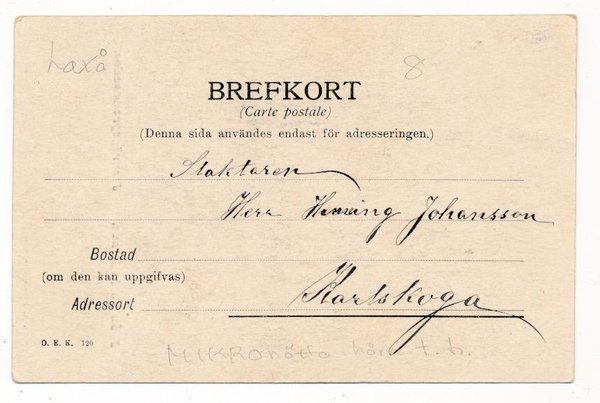 Laxå
8
BREFKORT
(Carte postale)
(Denna sida användes endast för adresseringen.)
Herr Henning Johansson
Bostad
(om den kan uppgifvas)
Karlskoga
Adressort
O. E. K. 120
MIKRO hörn t. h.